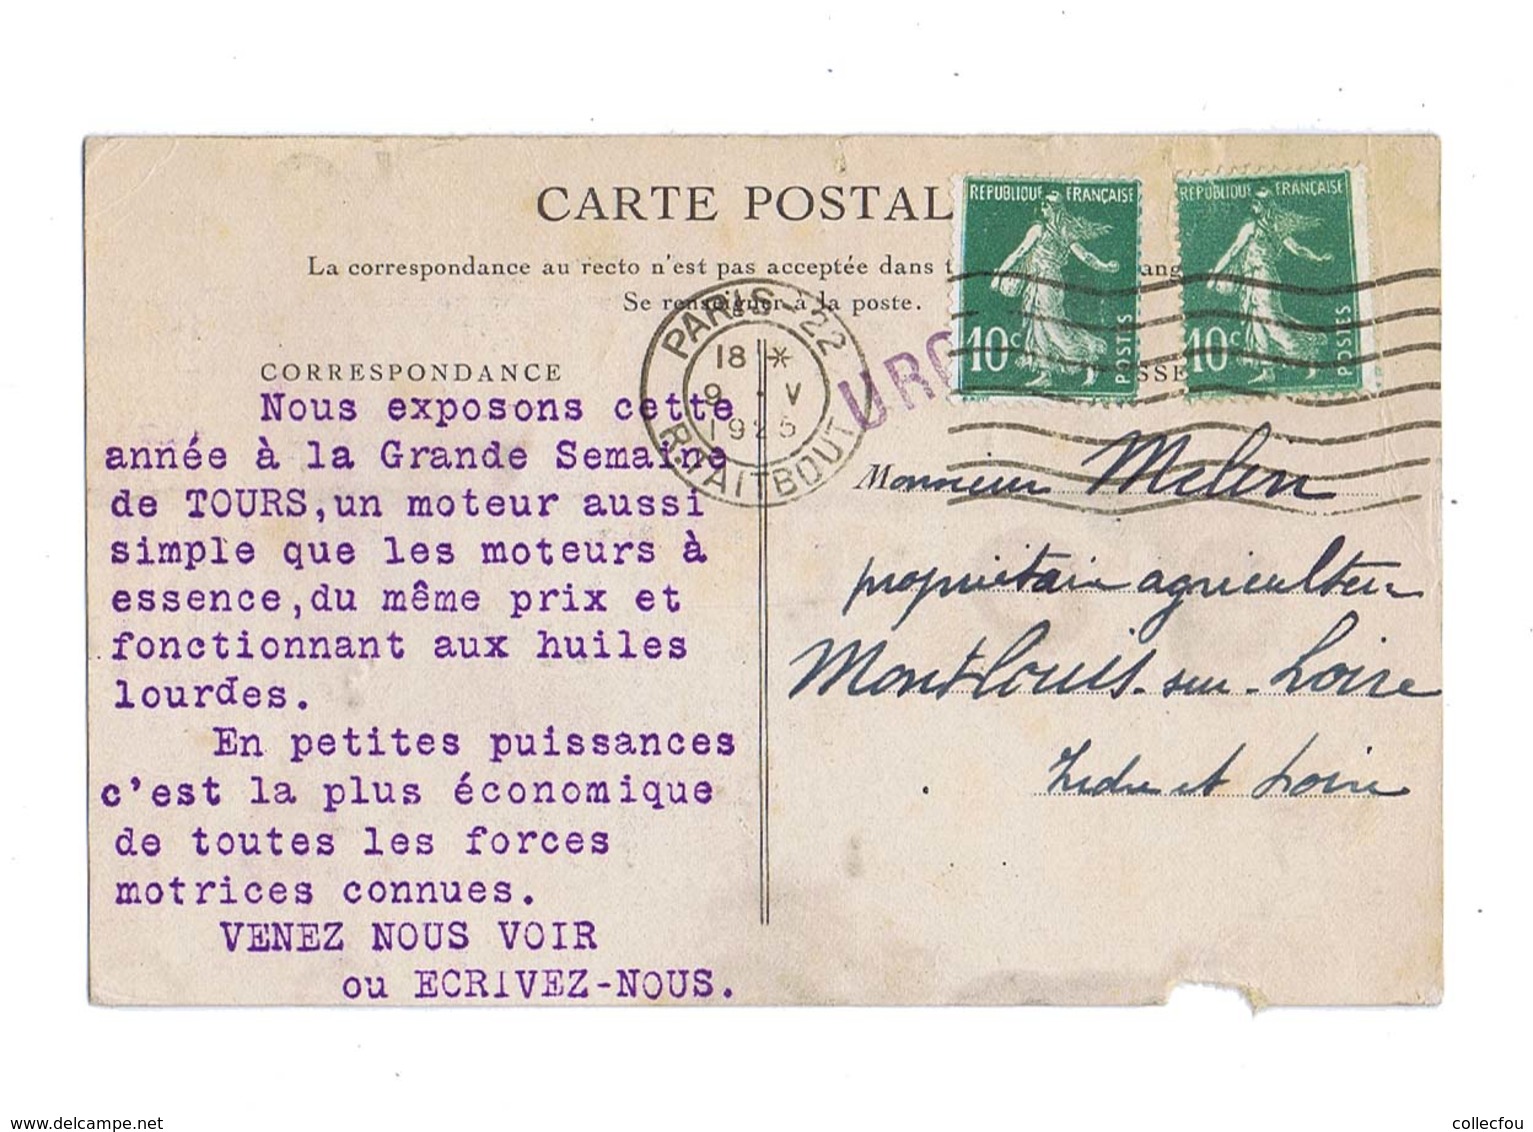 CARTE POSTAL
La correspondance au recto n'est pas acceptée dans t ang
Se renseigner à la poste.
REPUBLIQUE FRANÇAISE
10c POSTES
REPUBLIQUE FRANÇAISE
10c POSTES
PARIS 22
18 *
9 · V
1925
R. TAITBOUT
URG
CORRESPONDANCE
SSE
Nous exposons cette
année à la Grande Semaine
de TOURS,un moteur aussi
simple que les moteurs à
essence,du même prix et
fonctionnant aux huiles
lourdes.
En petites puissances
c'est la plus économique
de toutes les forces
motrices connues.
VENEZ NOUS VOIR
ou ECRIVEZ-NOUS.
Monsieur Melin
propriétaire agriculteur
Montlouis-sur-Loire
Indre et Loire
delcampe.net
collecfou